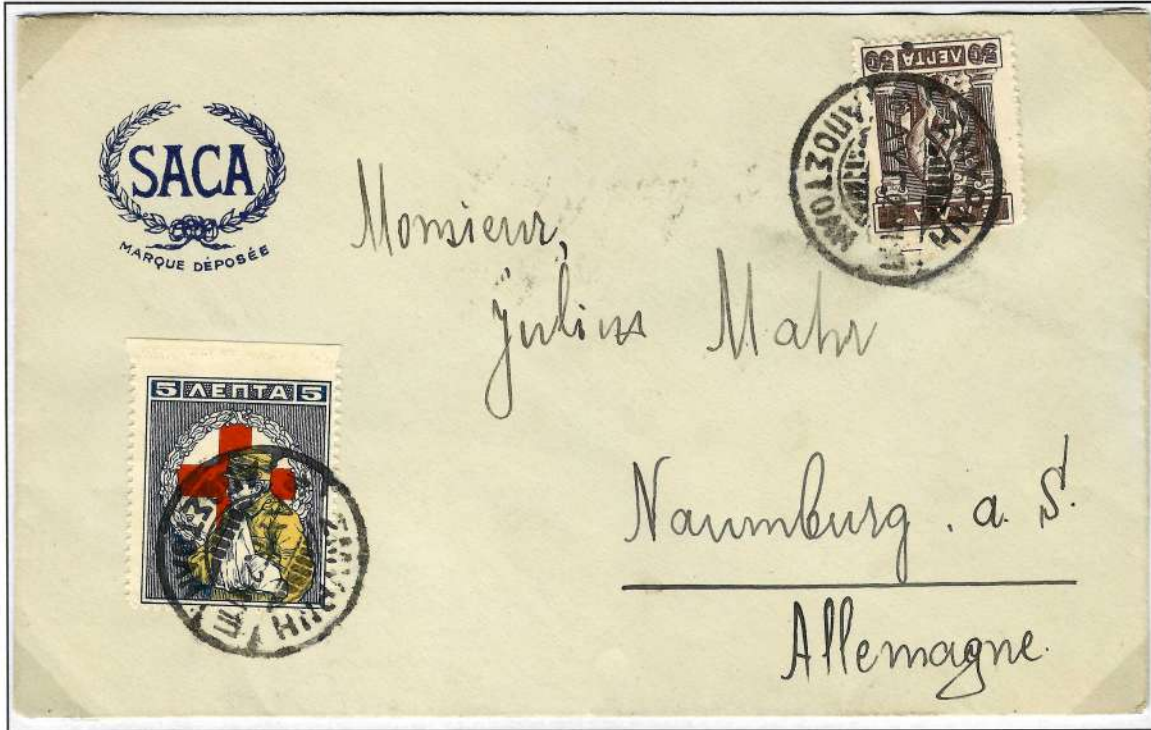 SACA
MARQUE DÉPOSÉE
50 ΛΕΠΤΑ 50
Monsieur,
Julius Mahr
5 ΛΕΠΤΑ 5
Naumburg. a. S.
Allemagne.